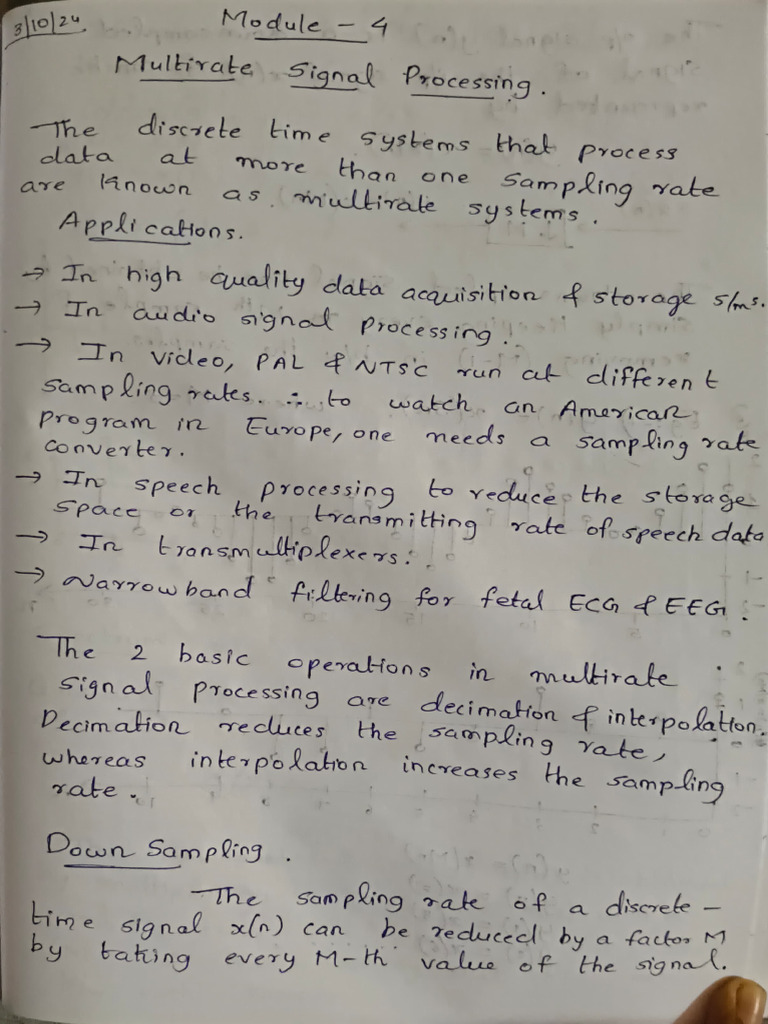 3/10/24
Module - 4
Multirate Signal Processing.
The discrete time systems that process
data at more than one sampling rate
are known as multirate systems.
Applications.
→ In high quality data acquisition & storage s/ms.
→ In audio signal processing.
→ In video, PAL & NTSC run at different
sampling rates. ∴ to watch an American
program in Europe, one needs a sampling rate
converter.
→ In speech processing to reduce the storage
space or the transmitting rate of speech data
→ In transmultiplexers.
→ Narrowband filtering for fetal ECG & EEG.
The 2 basic operations in multirate
signal processing are decimation & interpolation.
Decimation reduces the sampling rate,
whereas interpolation increases the sampling
rate.
Down Sampling.
The sampling rate of a discrete -
time signal x(n) can be reduced by a factor M
by taking every M-th value of the signal.